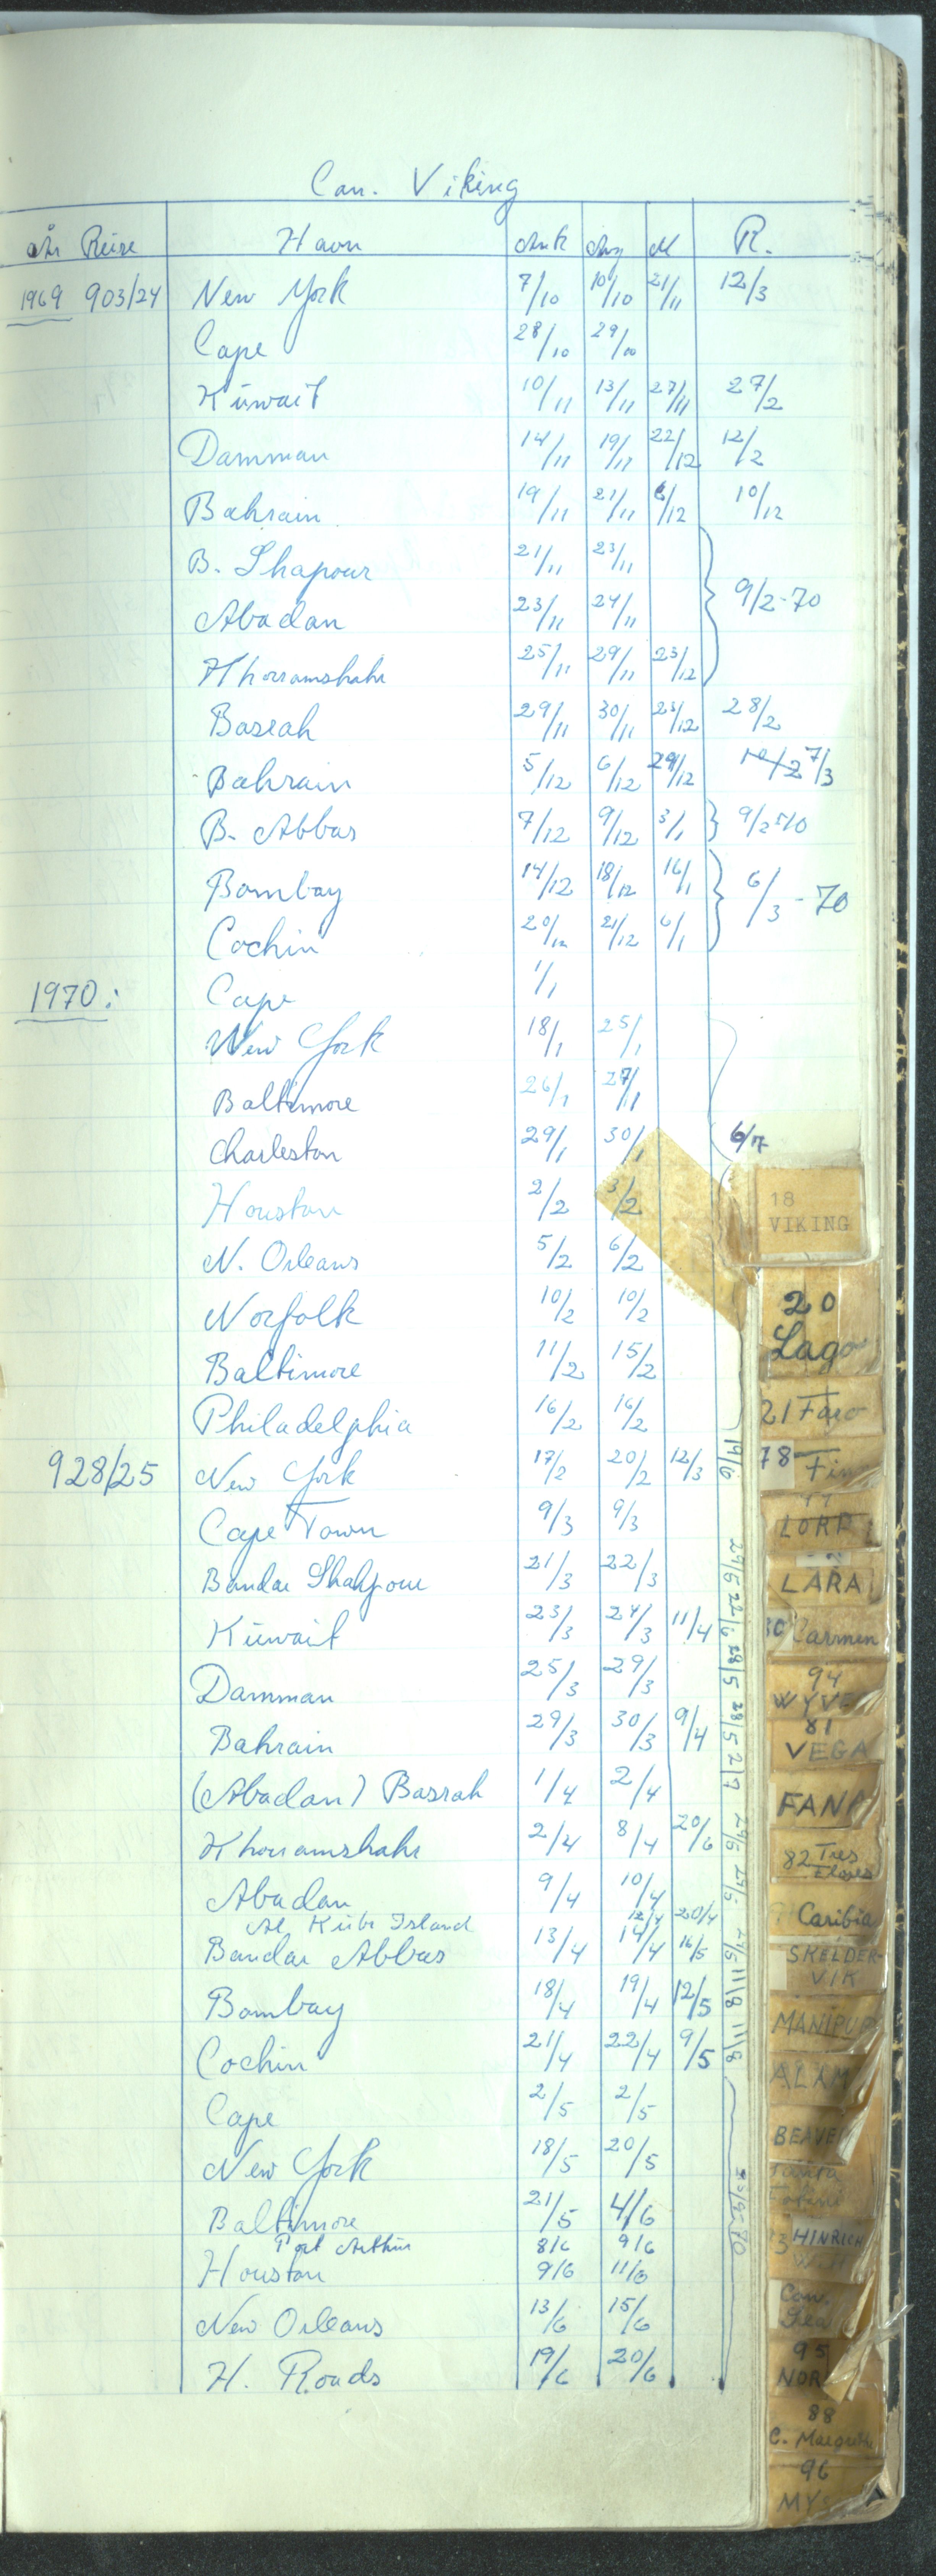 Can. Viking
År Reise Havn Ank Avg M R.
1969 903/24 New York 7/10 10/10 21/11 12/3
Cape 28/10 29/10
Kuwait 10/11 13/11 27/11 27/2
Damman 14/11 19/11 22/12 12/2
Bahrain 19/11 21/11 6/12 10/12
B. Shapour 21/11 23/11
Abadan 23/11 24/11 9/2-70
Khorramshahr 25/11 29/11 23/12
Basrah 29/11 30/11 23/12 28/2
Bahrain 5/12 6/12 29/12 7/3
B. Abbas 7/12 9/12 3/1 9/2-70
Bombay 14/12 18/12 16/1 6/3-70
Cochin 20/12 21/12 6/1
1970: Cape 1/1
New York 18/1 25/1
Baltimore 26/1 27/1
Charleston 29/1 30/1 6/7
Houston 2/2 3/2
N. Orleans 5/2 6/2
Norfolk 10/2 10/2
Baltimore 11/2 15/2
Philadelphia 16/2 16/2
928/25 New York 17/2 20/2 12/3 19/6
Cape Town 9/3 9/3
Bandar Shahpour 21/3 22/3 29/5
Kuwait 23/3 24/3 11/4 22/6
Damman 25/3 29/3 28/5
Bahrain 29/3 30/3 9/4 28/5
(Abadan) Basrah 1/4 2/4 2/7
Khorramshahr 2/4 8/4 20/6 29/5
Abadan 9/4 10/4
Al Kubr Island 12/4 20/4
Bandar Abbas 13/4 14/4 16/5
Bombay 18/4 19/4 12/5 11/8
Cochin 21/4 22/4 9/5 11/8
Cape 2/5 2/5
New York 18/5 20/5
Baltimore 21/5 4/6
Port Arthur 8/6 9/6
Houston 9/6 11/6
New Orleans 13/6 15/6
H. Roads 19/6 20/6
18
VIKING
20
Lago
21 Faro
78
LARA
Carmen
94
81
VEGA
82 Tres
Caribia
SKELDER-
VIK
HINRICH
95
88
C. Margrethe
96